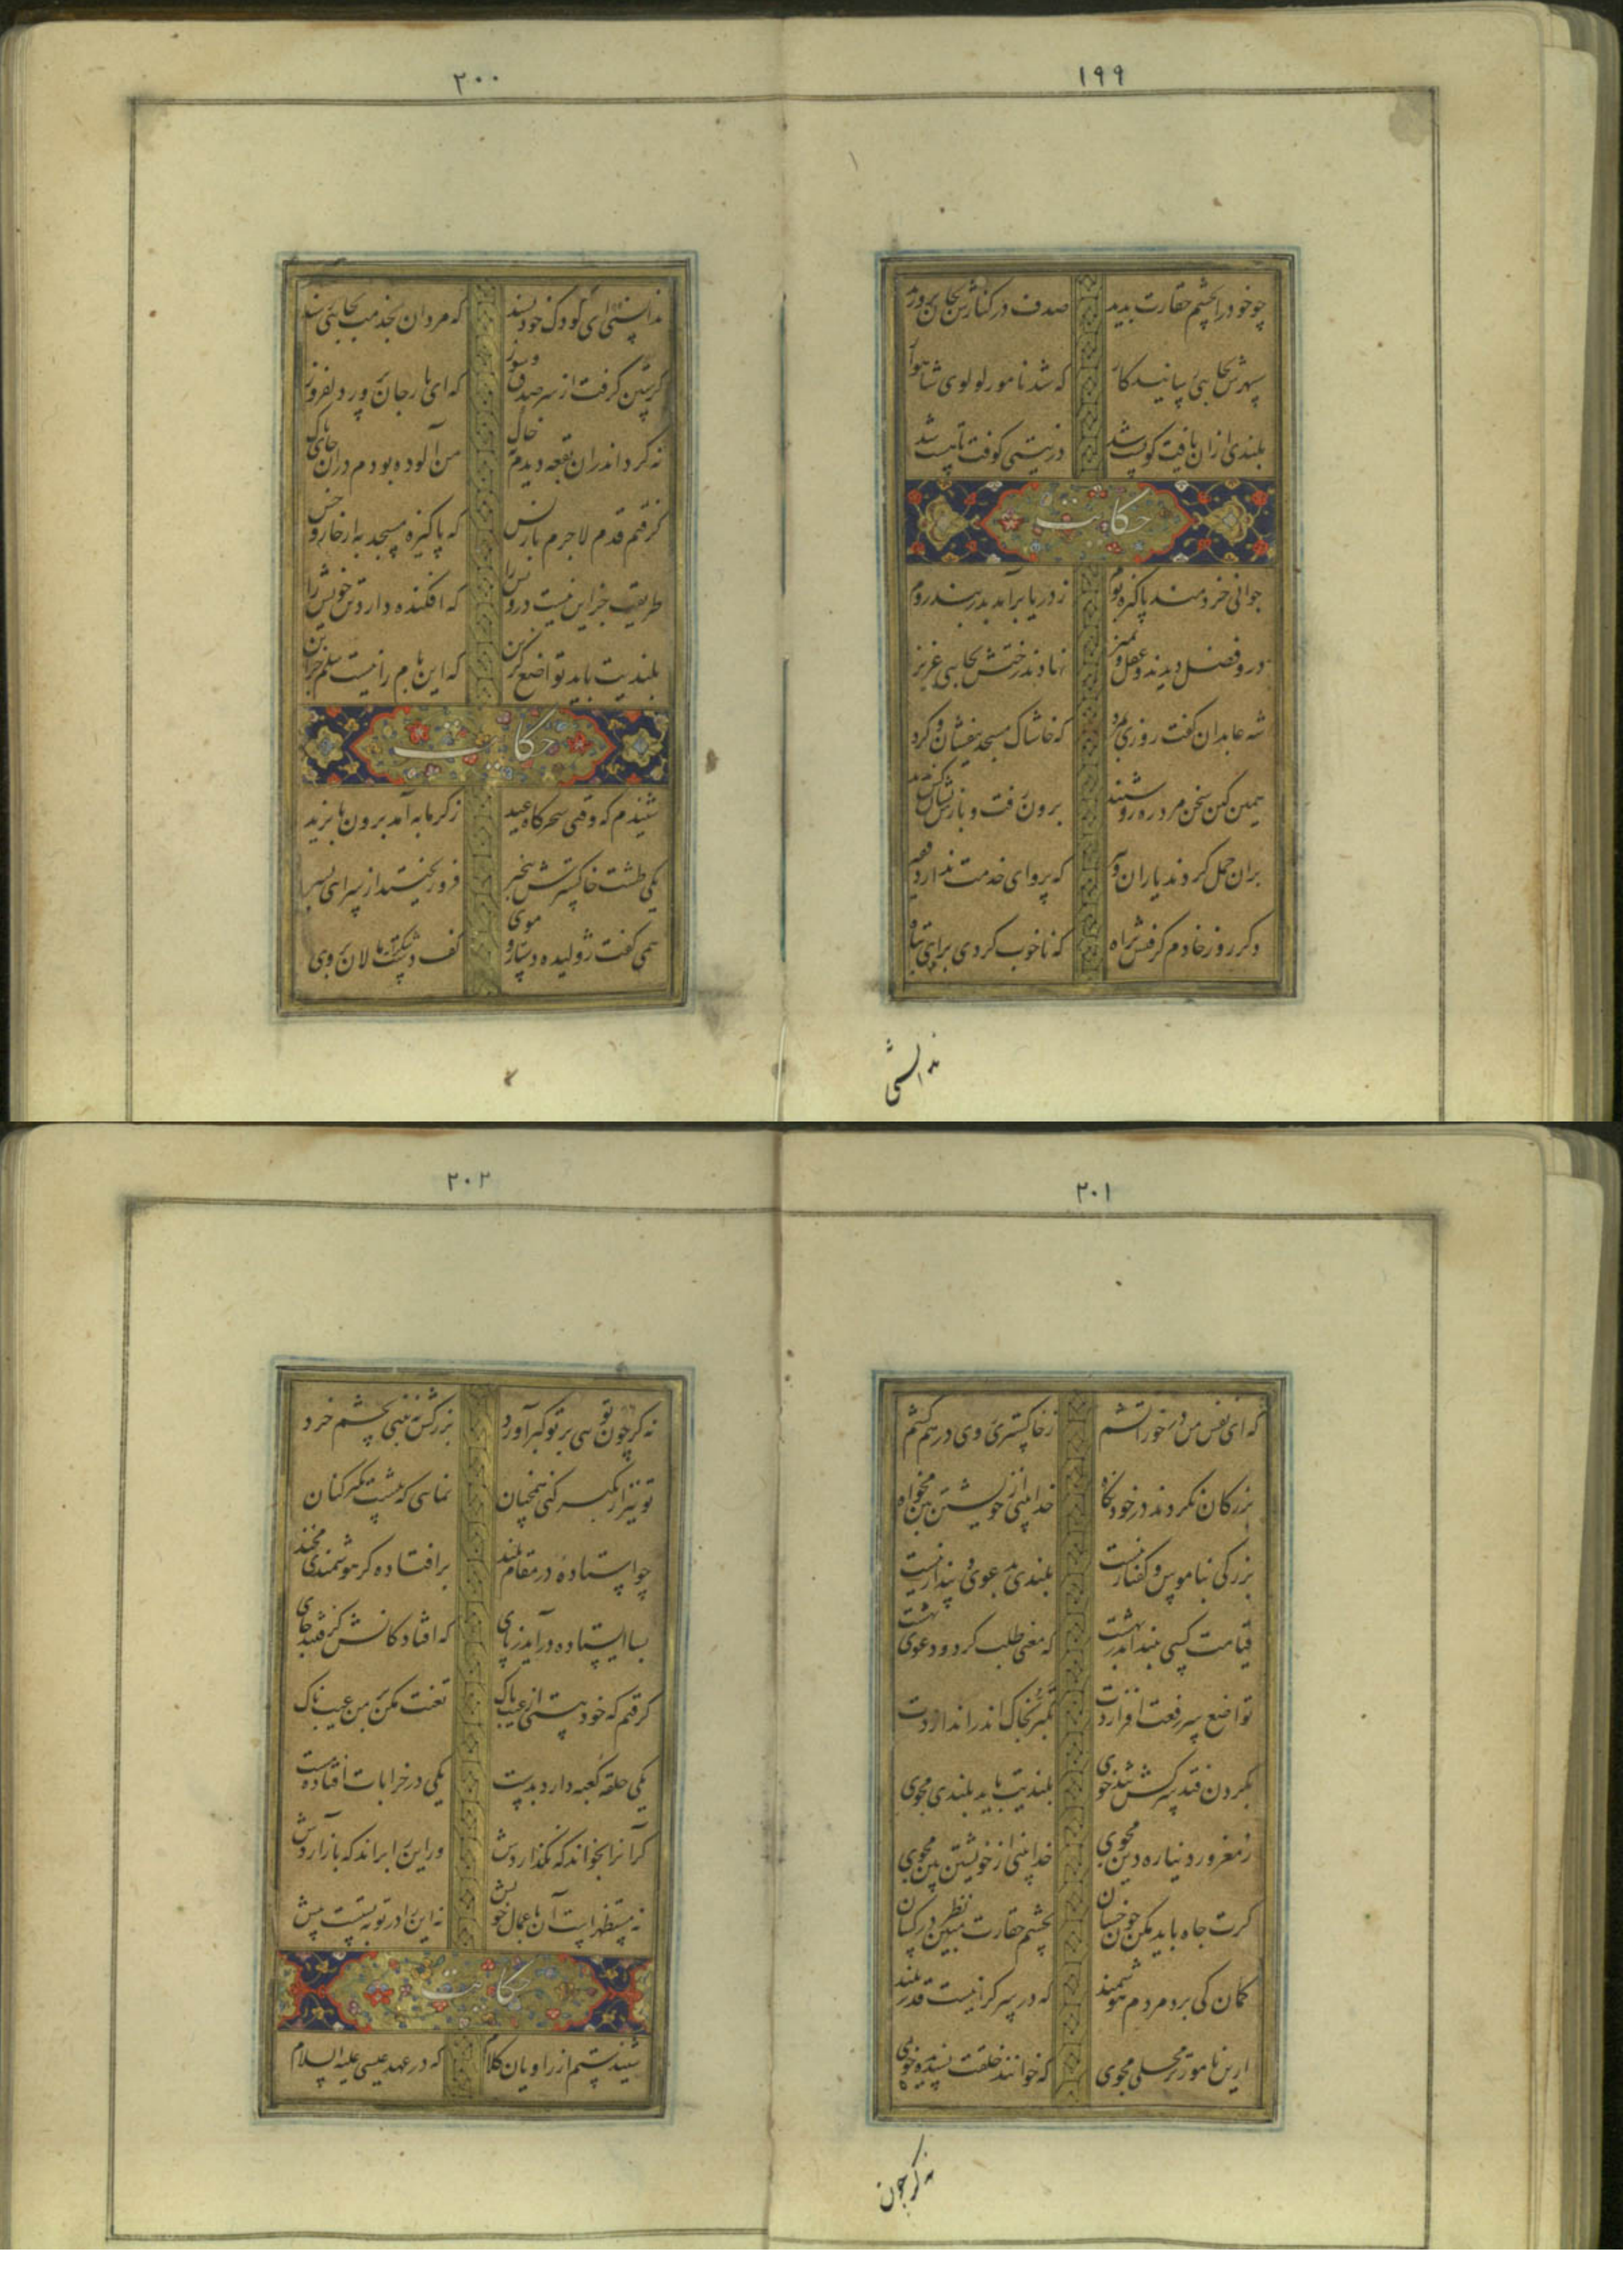 ۱۹۹
چو خود را بچشم حقارت بدید صدف در کنارش بجان پرورید
سپهرش بجایی رسانید کار که شد نامور لولوی شاهوار
بلندی از ان یافت کو پست شد در نیستی کوفت تا هست شد
حکایت
جوانی خردمند پاکیزه بوم ز دریا برآمد بدربند روم
درو فضل دیدند و عقل و تمیز نهادند رختش بجایی عزیز
شه عابدان گفت روزی بمرد که خاشاک مسجد بیفشان و گرد
همین کین سخن مرد ره رو شنید برون رفت و بازش نشان کس ندید
بران حمل کردند یاران و پیر که پروای خدمت ندارد فقیر
دگر روز خادم گرفتش براه که ناخوب کردی برای تباه
ندانستی
۲۰۰
ندانستی ای کودک خودپسند که مردان بخدمت بجایی رسند
گرستن گرفت از سر صدق و سوز که ای یار جان پرور دلفروز
نه گرد اندران بقعه دیدم نه خاک من آلوده بودم دران جای پاک
گرفتم قدم لاجرم باز پس که پاکیزه مسجد به از خار و خس
طریقت جز این نیست درویش را که افکنده دارد تن خویش را
بلندیت باید تواضع گزین که این بام را نیست سلم جز این
حکایت
شنیدم که وقتی سحرگاه عید ز گرمابه آمد برون بایزید
یکی طشت خاکسترش بیخبر فرو ریختند از سرایی بسر
همی گفت ژولیده دستار و موی کف دست شکرانه مالان بروی
۲۰۱
که ای نفس من در خور آتشم ز خاکستری روی درهم کشم
بزرگان نکردند در خود نگاه خدابینی از خویشتن بین مخواه
بزرگی بناموس و گفتار نیست بلندی بدعوی و پندار نیست
قیامت کسی بیند اندر بهشت که معنی طلب کرد و دعوی بهشت
تواضع سر رفعت افرازدت تکبر بخاک اندر اندازدت
بگردن فتد سرکش تندخوی بلندیت باید بلندی مجوی
ز مغرور دنیا ره دین مجوی خدابینی از خویشتن بین مجوی
گرت جاه باید مکن چون خسان بچشم حقارت نظر در کسان
گمان کی برد مردم هوشمند که در سرگرانیست قدر بلند
ازین نامورتر محلی مجوی که خوانند خلقت پسندیده خوی
نه گر چون
۲۰۲
نه گر چون تویی بر تو کبر آورد بزرگش نبینی بچشم خرد
تو نیز ار تکبر کنی همچنان نمایی که پیشت تکبر کنان
چو استاده در مقام بلند بر افتاده گر هوشمندی مخند
بسا ایستاده درآمد ز پای که افتادگانش گرفتند جای
گرفتم که خود هستی از عیب پاک تعنت مکن بر من عیب ناک
یکی حلقه کعبه دارد بدست یکی در خرابات افتاده مست
گر آنرا بخواند که نگذاردش ور این را براند که باز آردش
نه مستظهرست آن باعمال خویش نه این را در توبه بستست پیش
حکایت
شنیدستم از راویان کلام که در عهد عیسی علیه السلام